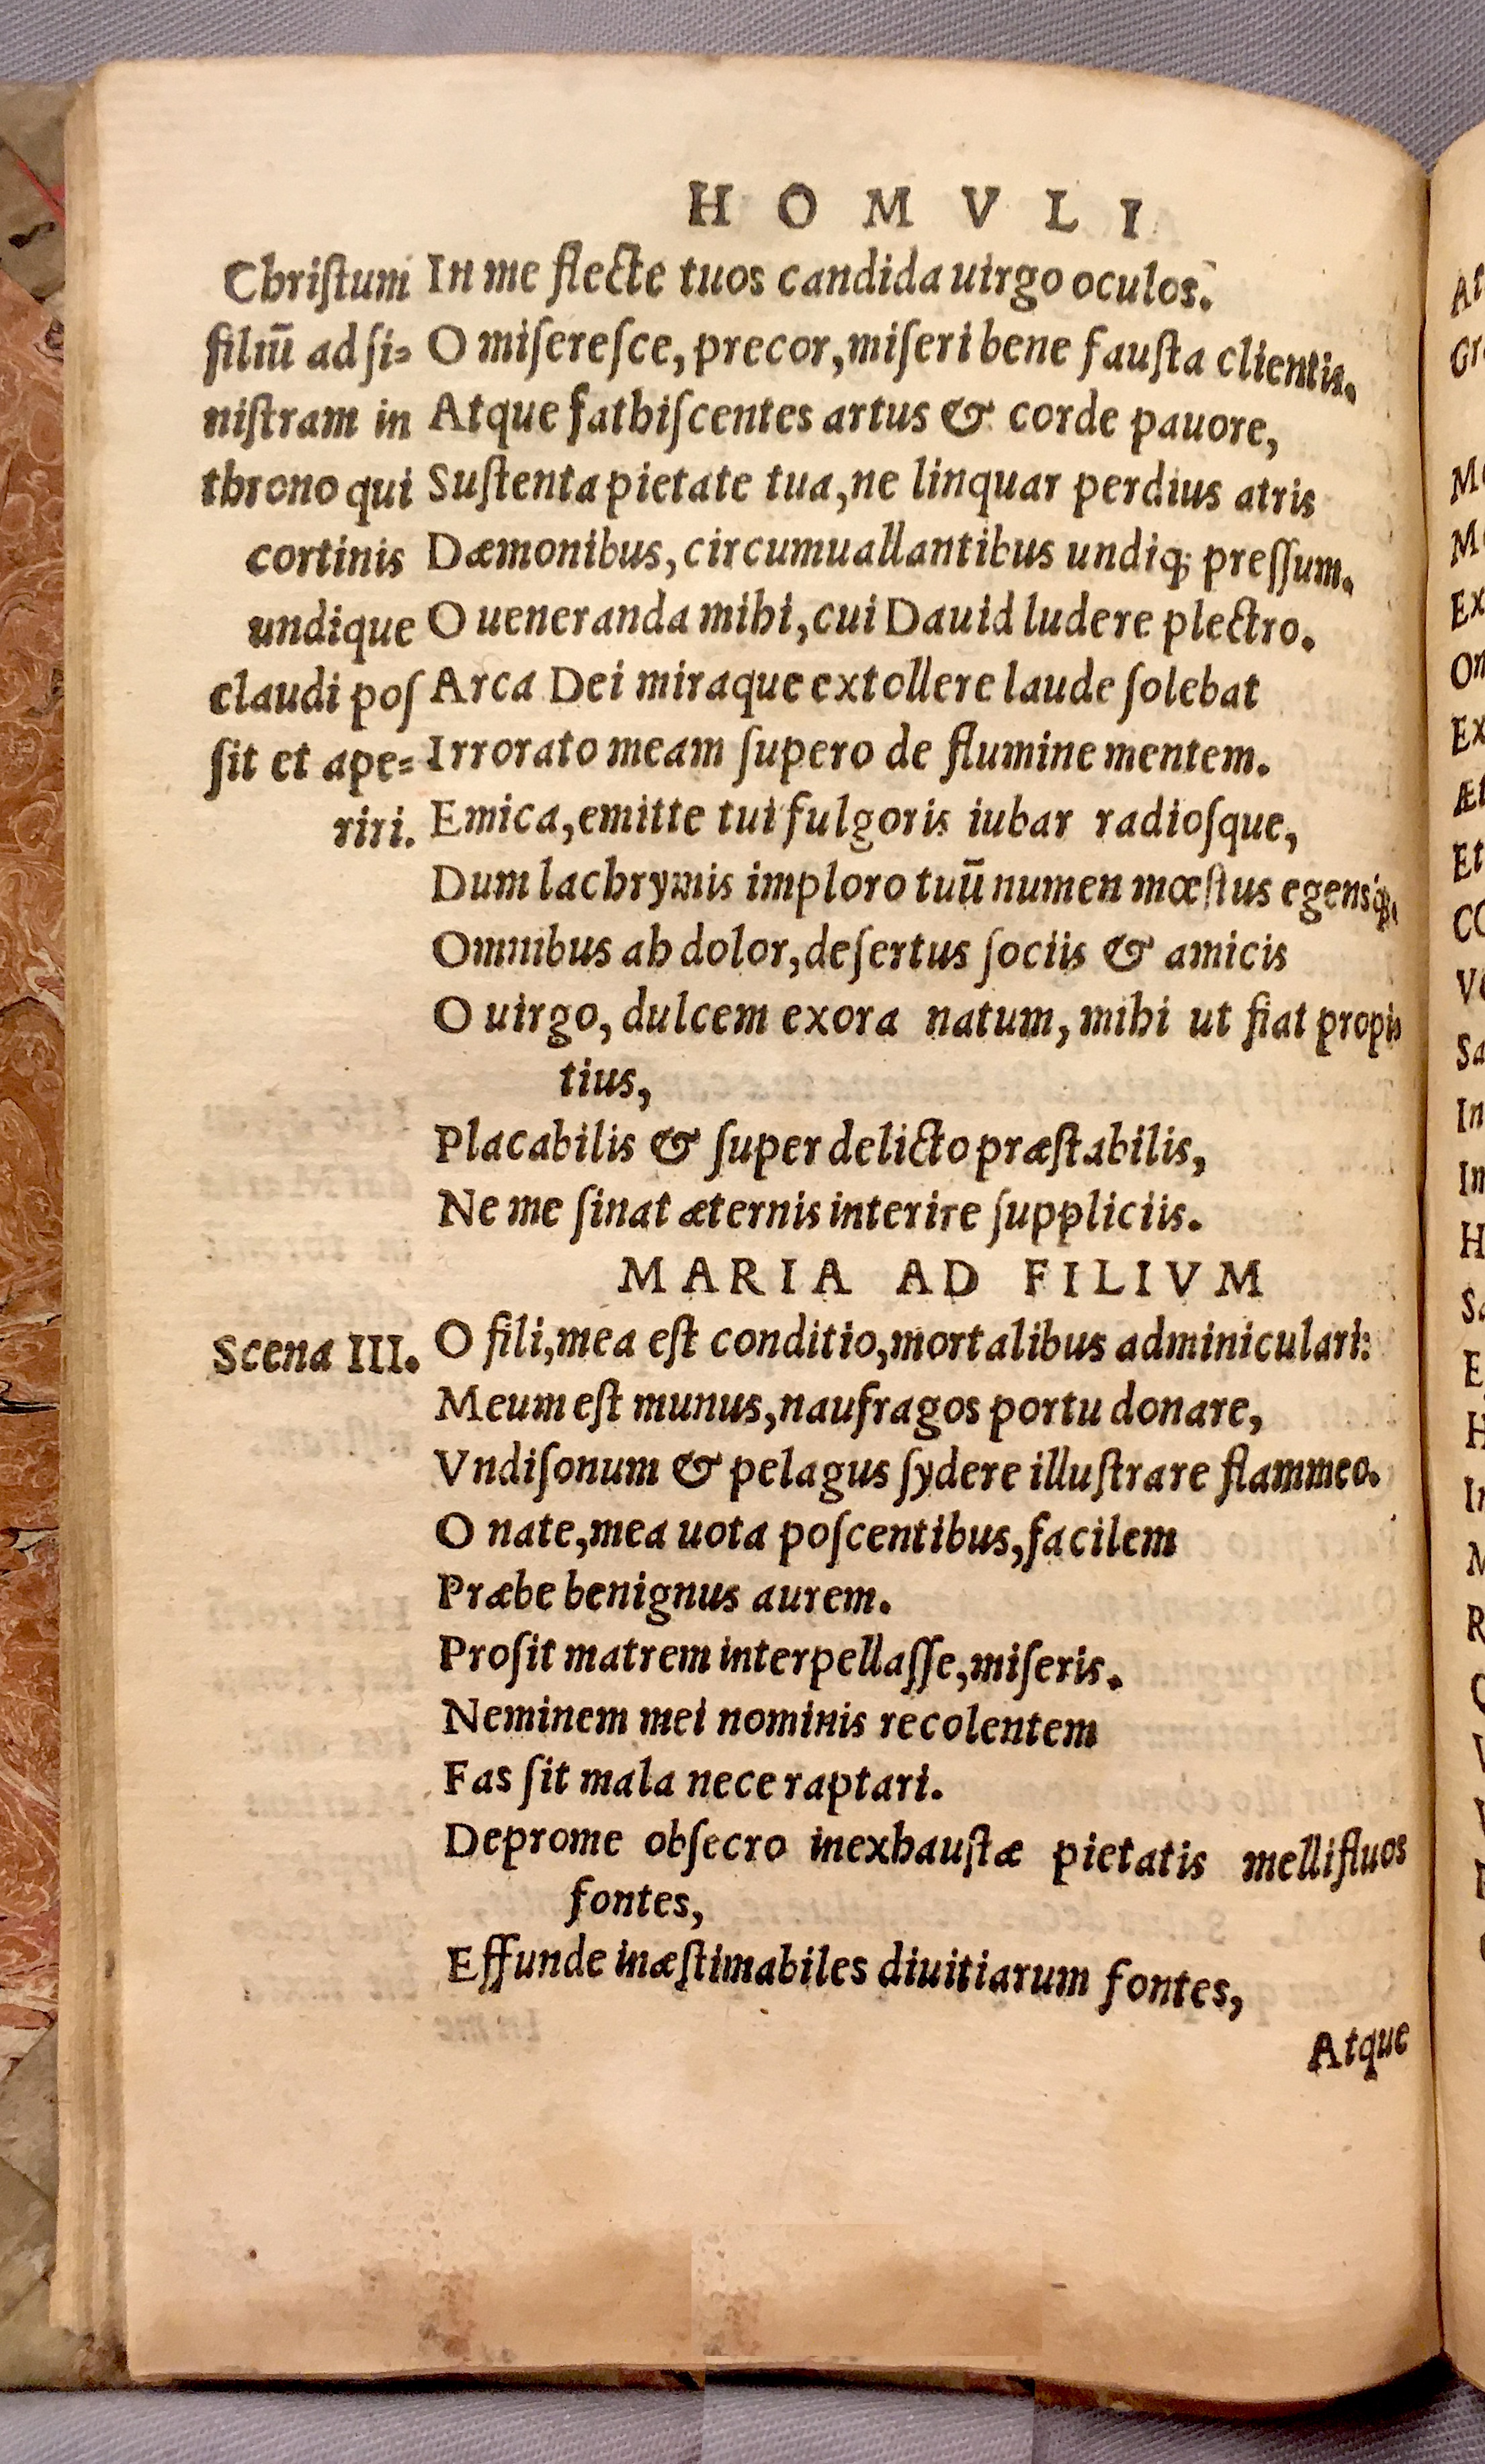 HOMVLI
Chriſtum
filiū ad ſi=
niſtram in
throno qui
cortinis
undique
claudi poſ
ſit et ape=
riri.
In me flecte tuos candida uirgo oculos.
O miſereſce, precor, miſeri bene fauſta clientis.
Atque fathiſcentes artus & corde pauore,
Suſtenta pietate tua, ne linquar perdius atris
Dæmonibus, circumuallantibus undiq; preſſum.
O ueneranda mihi, cui Dauid ludere plectro.
Arca Dei miraque extollere laude ſolebat
Irrorato meam ſupero de flumine mentem.
Emica, emitte tui fulgoris iubar radioſque,
Dum lachrymis imploro tuū numen mœſtus egensq́;,
Omnibus ah dolor, deſertus ſociis & amicis
O uirgo, dulcem exora natum, mihi ut fiat propi=
tius,
Placabilis & ſuper delicto præſtabilis,
Ne me ſinat æternis interire ſuppliciis.
MARIA AD FILIVM
Scena III.
O fili, mea eſt conditio, mortalibus adminiculari:
Meum eſt munus, naufragos portu donare,
Vndiſonum & pelagus ſydere illuſtrare flammeo.
O nate, mea uota poſcentibus, facilem
Præbe benignus aurem.
Proſit matrem interpellaſſe, miſeris.
Neminem mei nominis recolentem
Fas ſit mala nece raptari.
Deprome obſecro inexhauſtæ pietatis mellifluos
fontes,
Effunde inæſtimabiles diuitiarum fontes,
Atque